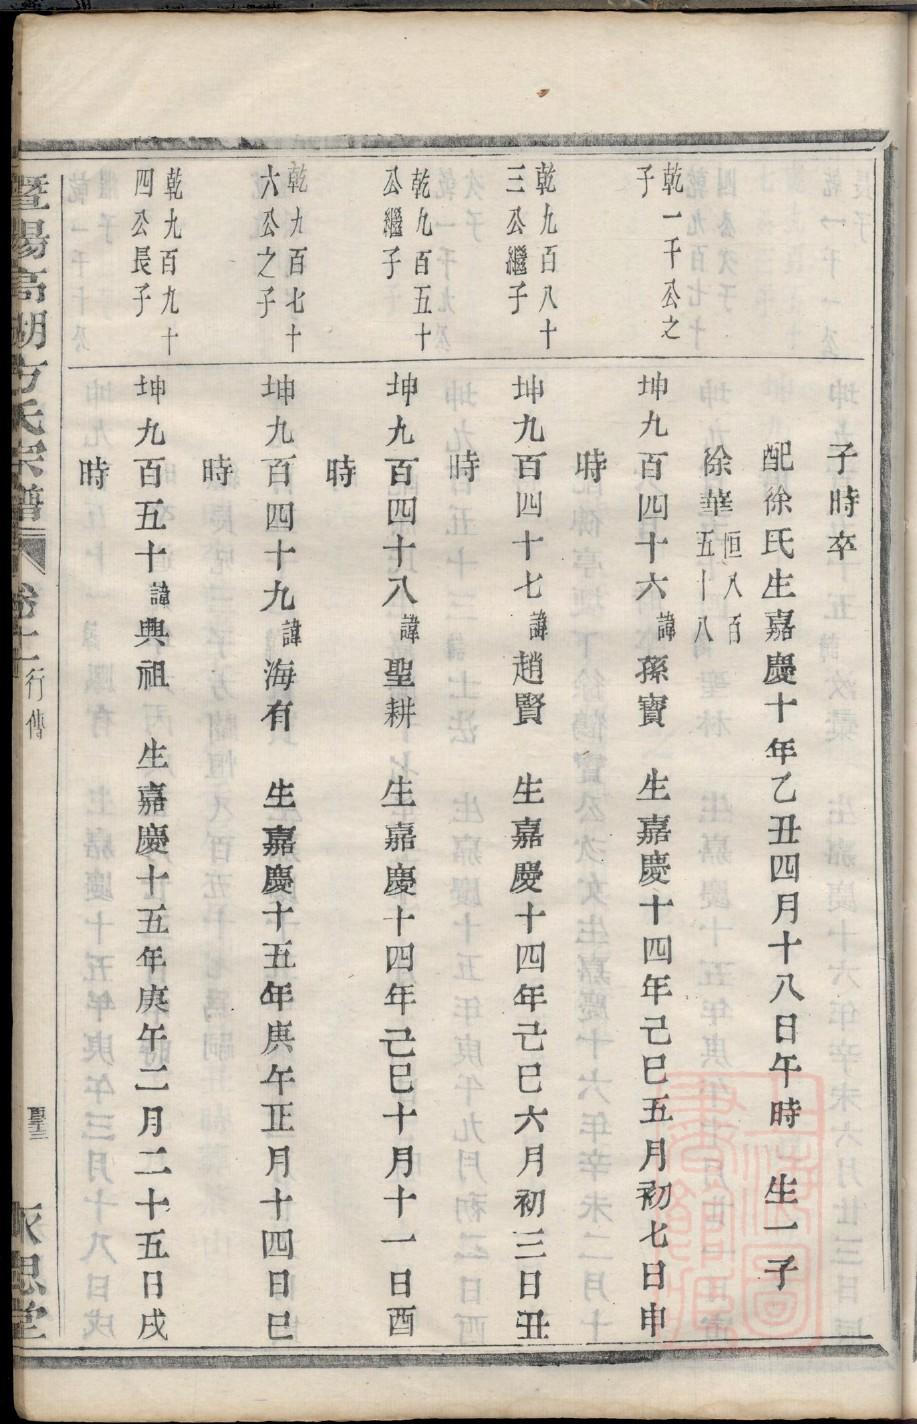 子時卒
配徐氏生嘉慶十年乙丑四月十八日午時　生一子
徐華恒八百五十八
乾一千公之子
坤九百四十六諱孫寶　生嘉慶十四年己巳五月初七日申
時
乾九百八十三公繼子
坤九百四十七諱趙賢　生嘉慶十四年己巳六月初三日丑
時
乾九百五十公繼子
坤九百四十八諱聖耕　生嘉慶十四年己巳十月十一日酉
時
乾九百七十六公之子
坤九百四十九諱海有　生嘉慶十五年庚午正月十四日巳
時
乾九百九十四公長子
坤九百五十諱興祖　生嘉慶十五年庚午二月二十五日戌
時
暨陽高湖方氏宗譜
行傳
思堂